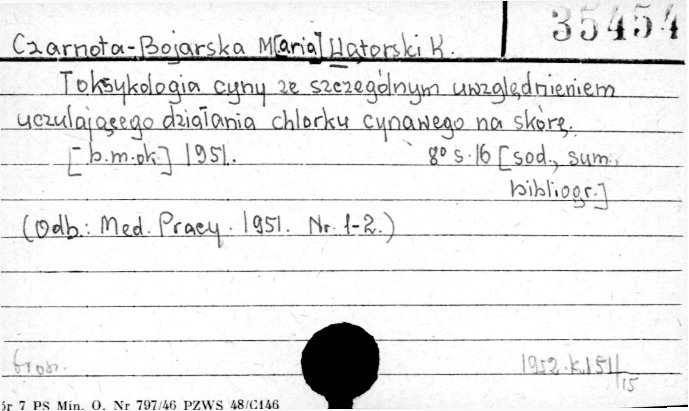 35454
Czarnota-Bojarska M[aria] Hatorski K.
Toksykologia cyny ze szczególnym uwzględnieniem
uczulającego działania chlorku cynawego na skórę.
[b.m.ok.] 1951. 8º s.16 [sod., sum.,
bibliogr.]
(Odb.: Med. Pracy. 1951. Nr. 1-2.)
1952.K.151/15
7 PS Min. O. Nr 797/46 PZWS 48/G146